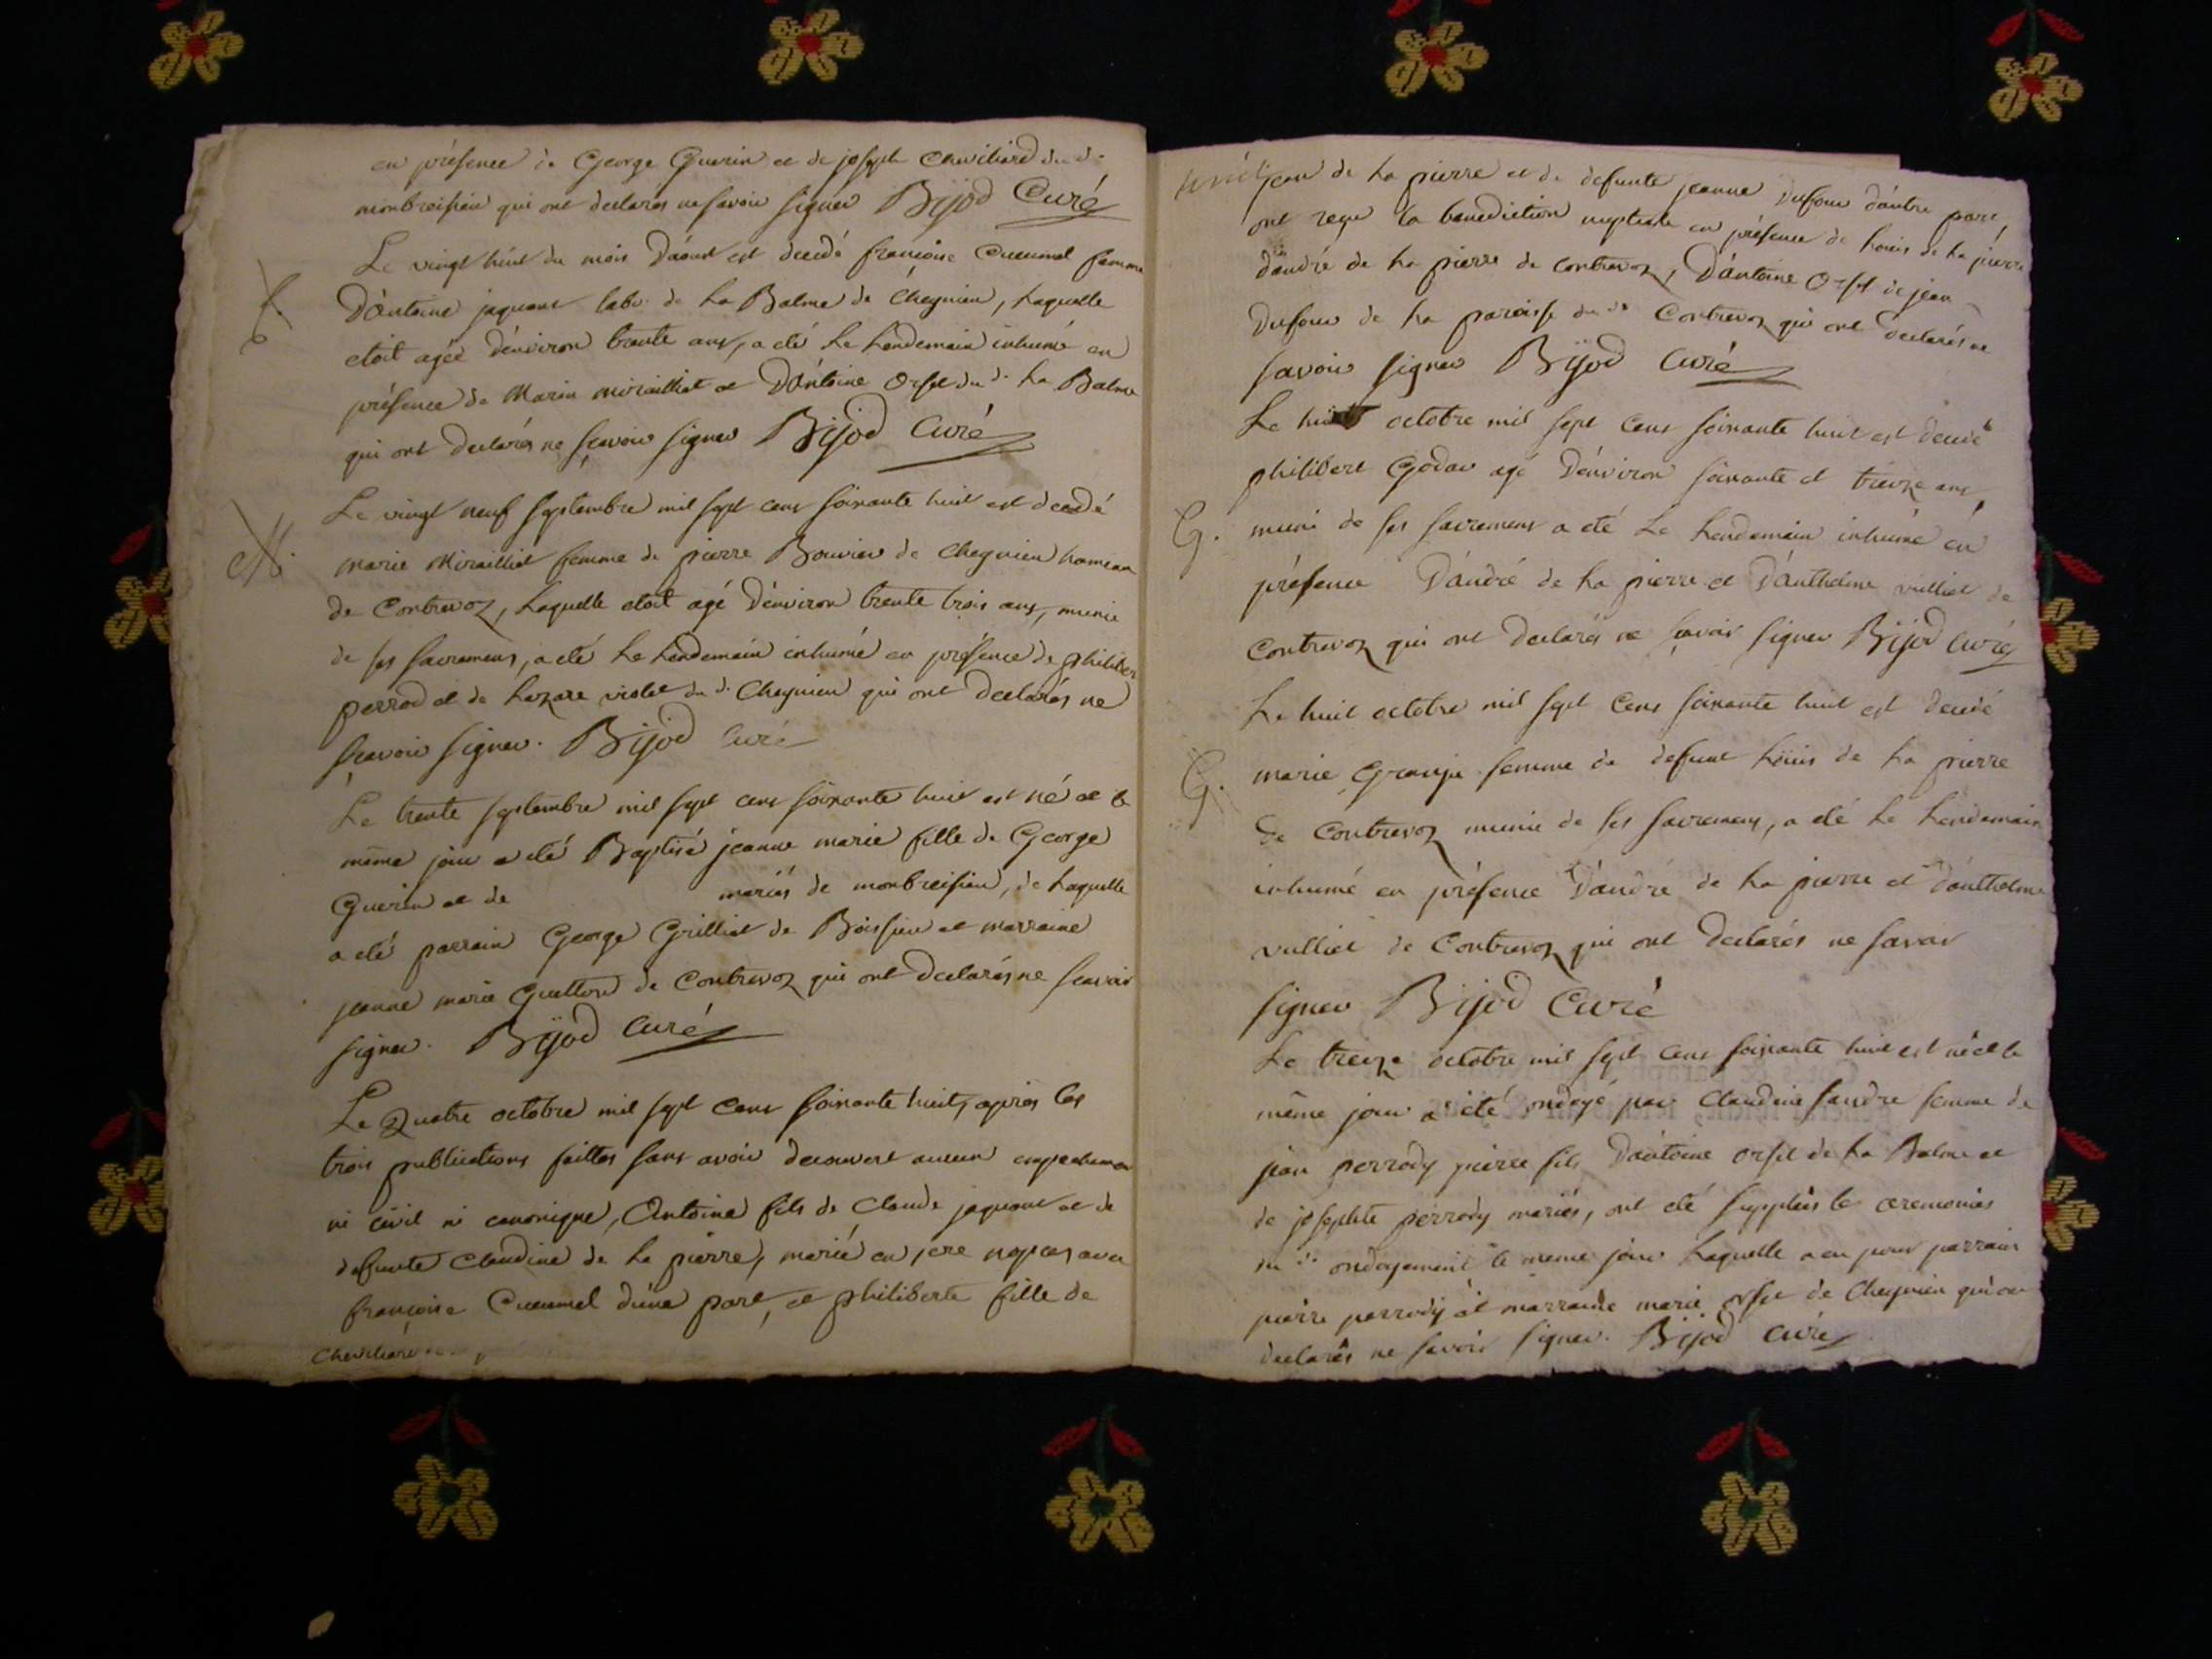 en présence de George Guerin et de joseph Chevilliard du d.
monbreisieu qui ont declarés ne savoir signer Bijod Curé
Le vingt huit du mois d'aoust est decedé françoise Cucumel femme
f.
d'antoine jaquant labr. de La Balme de Cheynieu, Laquelle
etoit agée d'environ trente ans, a eté Le Lendemain inhumé en
présence de Marin Miraillet et d'Antoine Orset du d. La Balme
qui ont declarés ne sçavoir signer Bijod Curé
Le vingt neuf septembre mil sept cens soixante huit est decedé
M.
marie Miraillet femme de pierre Bouvier de Cheynieu hameau
de Contrevoz, Laquelle etoit agé d'environ trente trois ans, munie
de ses sacremens, a eté Le Lendemain inhumé en présence de philiber
perrod et de Lazare violet du d. Cheynieu qui ont declarés ne
sçavoir signer. Bijod Curé
Le trente septembre mil sept cens soixante huit est né et le
même jour a eté Baptisé jeanne marie fille de George
Guerin et de mariés de monbreisieu, de Laquelle
a eté parrain George Grilliet de Boissieu et marraine
jeanne marie de Contrevoz qui ont declarés ne scavoir
signer. Bijod Curé
Le Quatre octobre mil sept cens soixante huit, après les
trois publications faittes sans avoir decouvert aucun empechemen
ni civil ni canonique, Antoine fils de Claude jaquant et de
defunte Claudine de La pierre, marié en 1ere nopces avec
françoise Cucumel d'une part, et philiberte fille de
jean de La pierre et de defunte jeanne Dufour d'autre part,
ont reçu la benediction nuptiale en présence de Louis de La pierre
d'andré de La pierre de Contrevoz, d'Antoine Orset de jean
Dufour de La paroisse du d. Contrevoz qui ont declarés ne
savoir signer Bijod Curé
Le huit octobre mil sept cens soixante huit est decedé
philibert Godar agé d'environ soixante et treize ans,
G.
muni de ses sacremens a eté Le Lendemain inhumé en
présence d'andré de La pierre et d'anthelme vulliet de
Contrevoz qui ont declarés ne sçavoir signer Bijod Curé
Le huit octobre mil sept cens soixante huit est decedé
G.
marie femme de defunt Loüis de La pierre
de Contrevoz munie de ses sacremens, a eté Le Lendemain
inhumé en présence d'andré de La pierre et d'anthelme
vulliet de Contrevoz qui ont declarés ne savoir
signer Bijod Curé
Le treize octobre mil sept cens soixante huit est né et le
même jour a été ondoyé par Claudine femme de
jean perrody pierre fils d'antoine orset de La Balme et
de josephte perrody mariés, ont eté suppleés les ceremonies
du d. ondoyement le même jour Laquelle a eu pour parrain
pierre perrody et marraine marie orset de Cheynieu qui on
declarés ne savoir signer. Bijod Curé